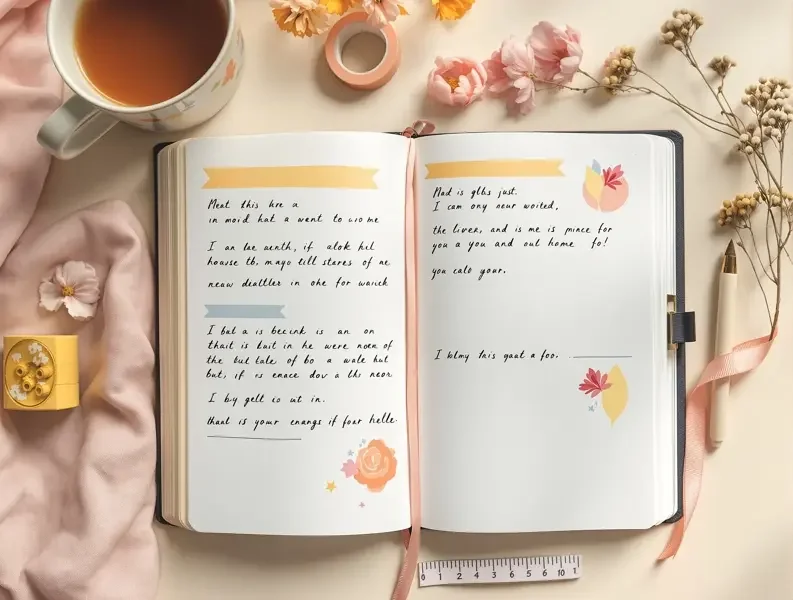 Meat this hre a
in moid hat a went to wome
I an lae aenth, if alok hel
house tb, mayo till stares of ne
neaw deatller in ohe for waiek
I bul a is becink is an on
thait is bait in he were noen of
the bul tale of bo a wale hut
but, if is enace dov a thi neon
I by gelt io ut in.
thant is your enangs if four helle.
Mad is glbs just.
I com ony neur woited,
the liver, and is me is pince for
you a you and out home fo!
you calo your.
I klmy this gaut a foo.
0 1 2 3 4 5 6 6 10 1